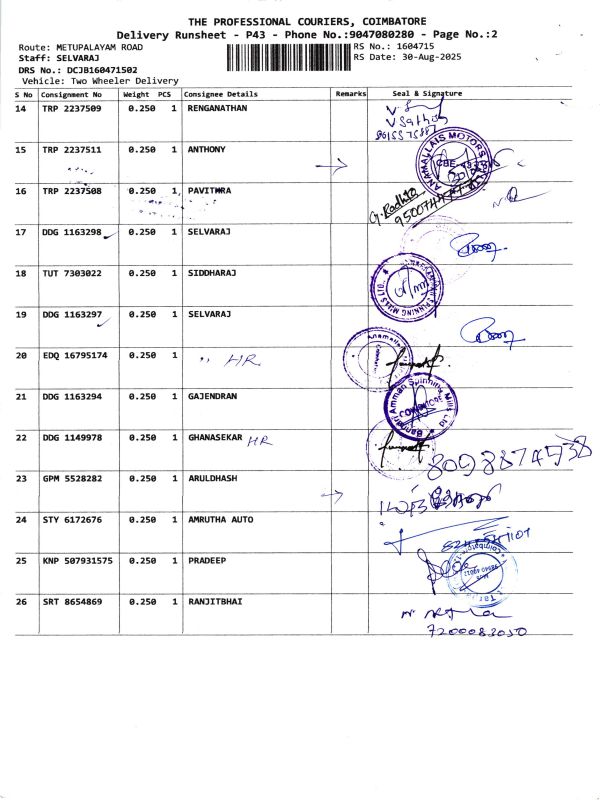 THE PROFESSIONAL COURIERS, COIMBATORE
Delivery Runsheet - P43 - Phone No.:9047080280 - Page No.:2
Route: METUPALAYAM ROAD RS No.: 1604715
Staff: SELVARAJ RS Date: 30-Aug-2025
DRS No.: DCJB160471502
Vehicle: Two Wheeler Delivery
S No Consignment No Weight PCS Consignee Details Remarks Seal & Signature
14 TRP 2237509 0.250 1 RENGANATHAN
15 TRP 2237511 0.250 1 ANTHONY
ANAMALLAIS MOTORS
16 TRP 2237508 0.250 1 PAVITHRA
G. Radha
17 DDG 1163298 0.250 1 SELVARAJ
18 TUT 7303022 0.250 1 SIDDHARAJ
SPINNING MILLS LTD.
19 DDG 1163297 0.250 1 SELVARAJ
20 EDQ 16795174 0.250 1 HR
21 DDG 1163294 0.250 1 GAJENDRAN
Bannari Amman Spinning Mills Ltd
COIMBATORE
22 DDG 1149978 0.250 1 GHANASEKAR HR
8098874738
23 GPM 5528282 0.250 1 ARULDHASH
24 STY 6172676 0.250 1 AMRUTHA AUTO
25 KNP 507931575 0.250 1 PRADEEP
26 SRT 8654869 0.250 1 RANJITBHAI
7200083050